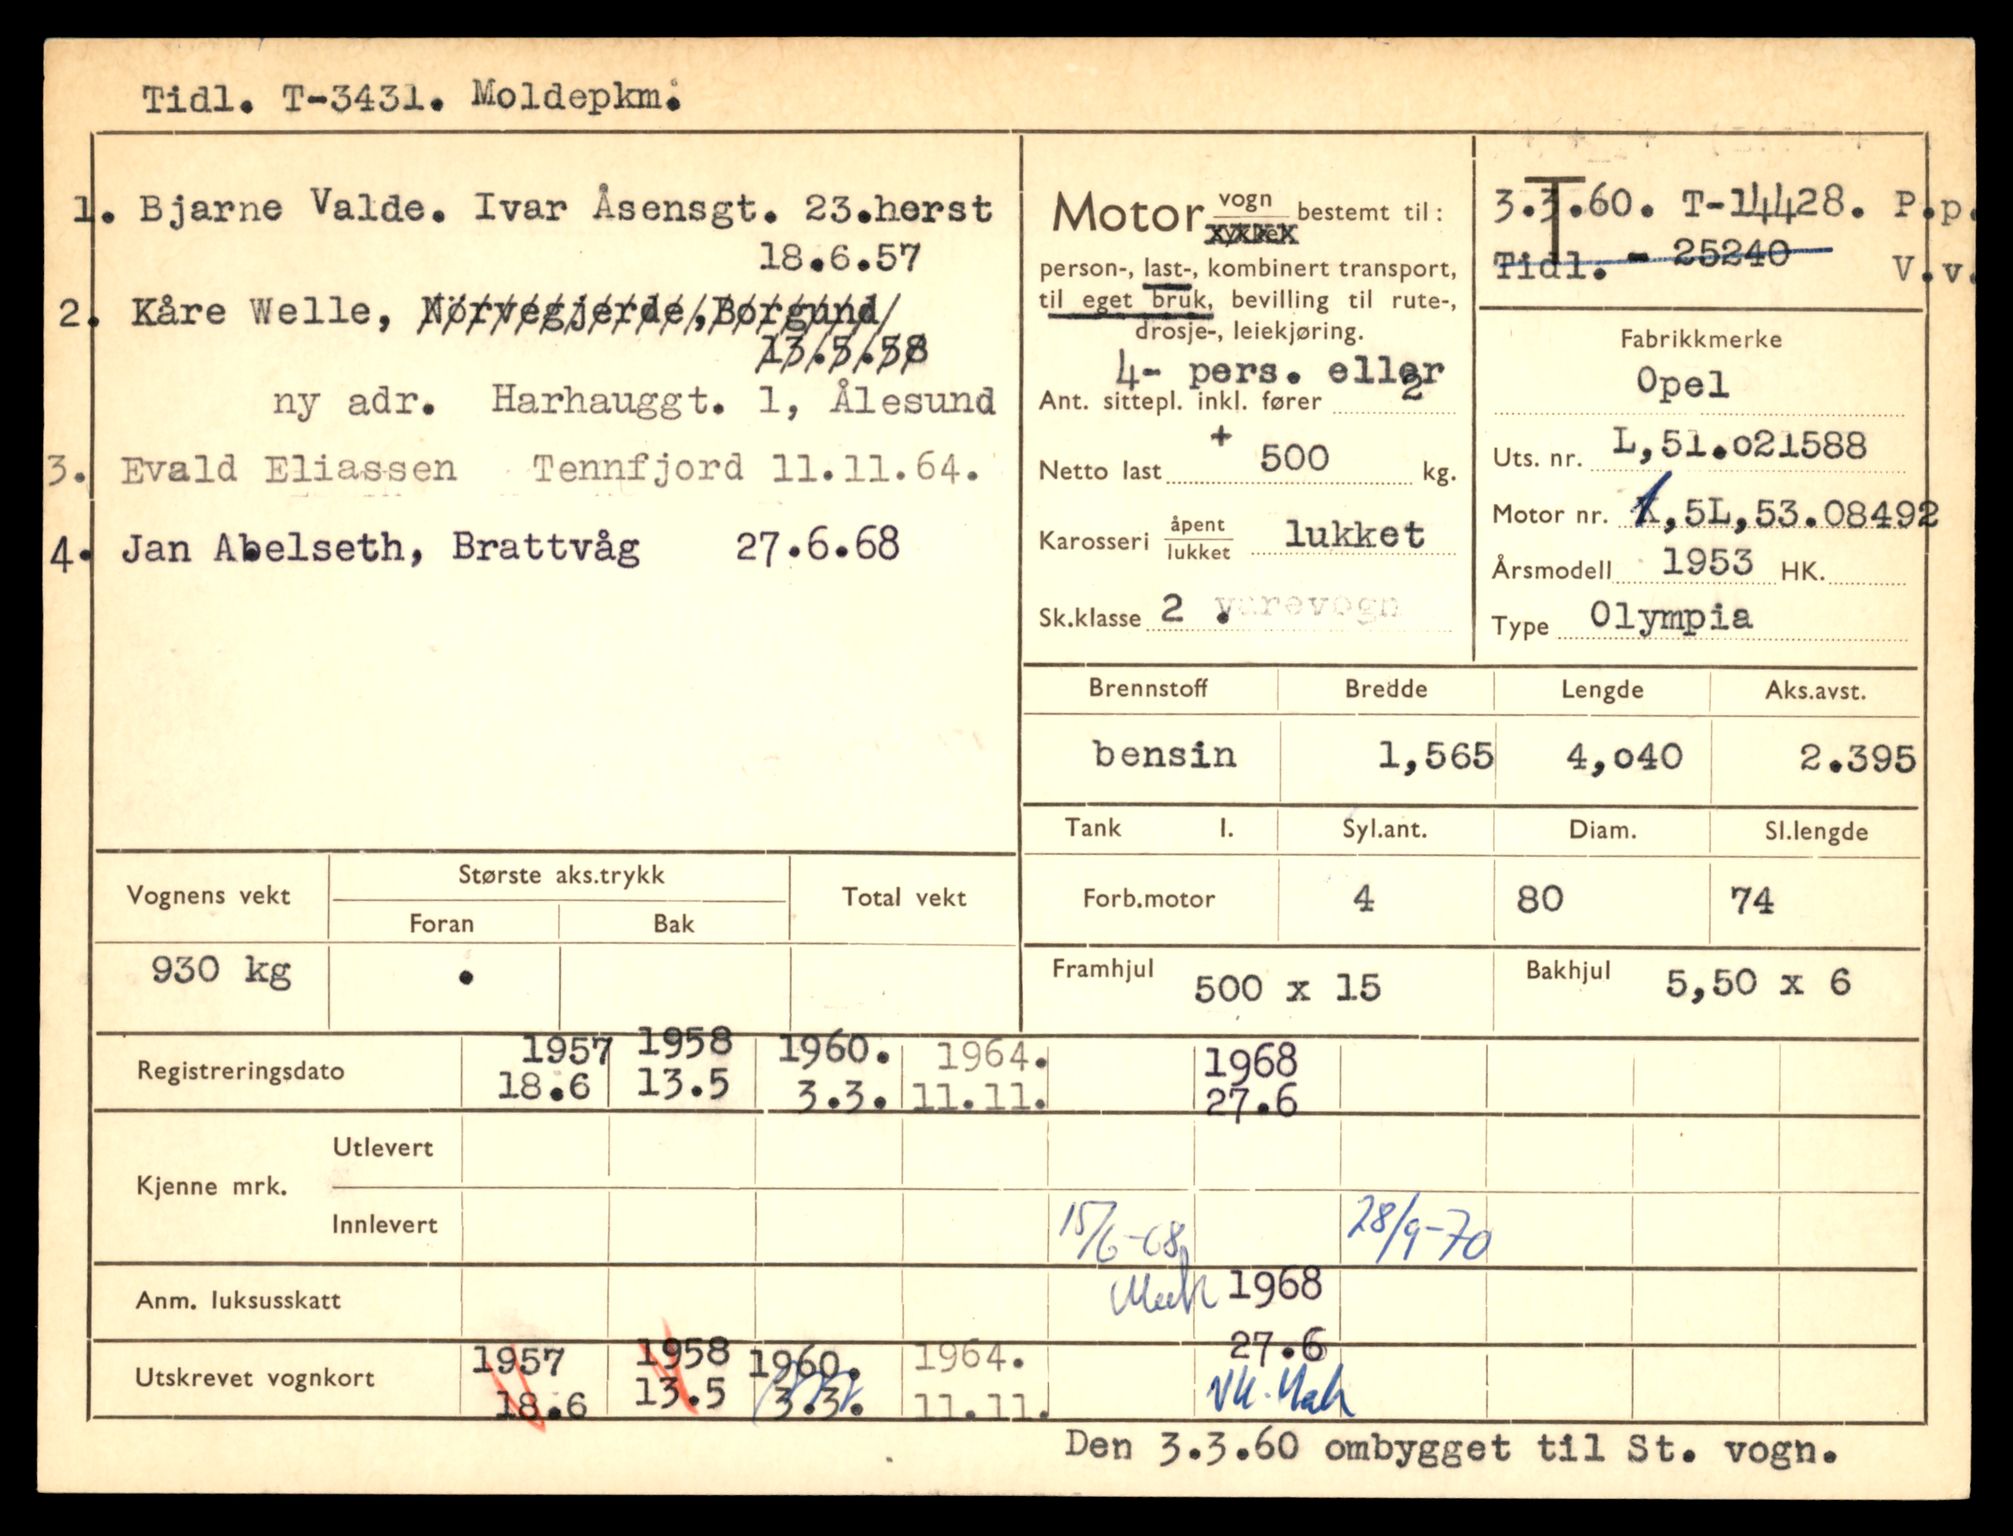 Tidl. T-3431. Moldepkm.
1. Bjarne Valde. Ivar Åsensgt. 23.herst
18.6.57
2. Kåre Welle, Nörvegjerde, Borgund
13.5.58
ny adr. Harhauggt. 1, Ålesund
3. Evald Eliassen Tennfjord 11.11.64.
4. Jan Abelseth, Brattvåg 27.6.68
Motor vogn bestemt til:
person-, last-, kombinert transport,
til eget bruk, bevilling til rute-,
drosje-, leiekjøring.
4- pers. eller
Ant. sittepl. inkl. fører 2
+
Netto last 500 kg.
Karosseri åpent lukket lukket
Sk.klasse 2 . varevogn
3.3.60. T-14428. P.p.
T
Tidl. - 25240 V.v.
Fabrikkmerke
Opel
Uts. nr. L,51.o21588
Motor nr. ,5L,53.08492
Årsmodell 1953 HK.
Type Olympia
Brennstoff Bredde Lengde Aks.avst.
bensin 1,565 4,o40 2.395
Tank l. Syl.ant. Diam. Sl.lengde
Forb.motor 4 80 74
Framhjul 500 x 15 Bakhjul 5,50 x 6
Vognens vekt Største aks.trykk Total vekt
Foran Bak
930 kg .
Registreringsdato 1957 1958 1960. 1964. 1968
18.6 13.5 3.3. 11.11. 27.6
Kjenne mrk. Utlevert
Innlevert 15/6-68 28/9-70
Anm. luksusskatt 1968
27.6
Utskrevet vognkort 1957 1958 1960. 1964.
18.6 13.5 3.3. 11.11.
Den 3.3.60 ombygget til St. vogn.